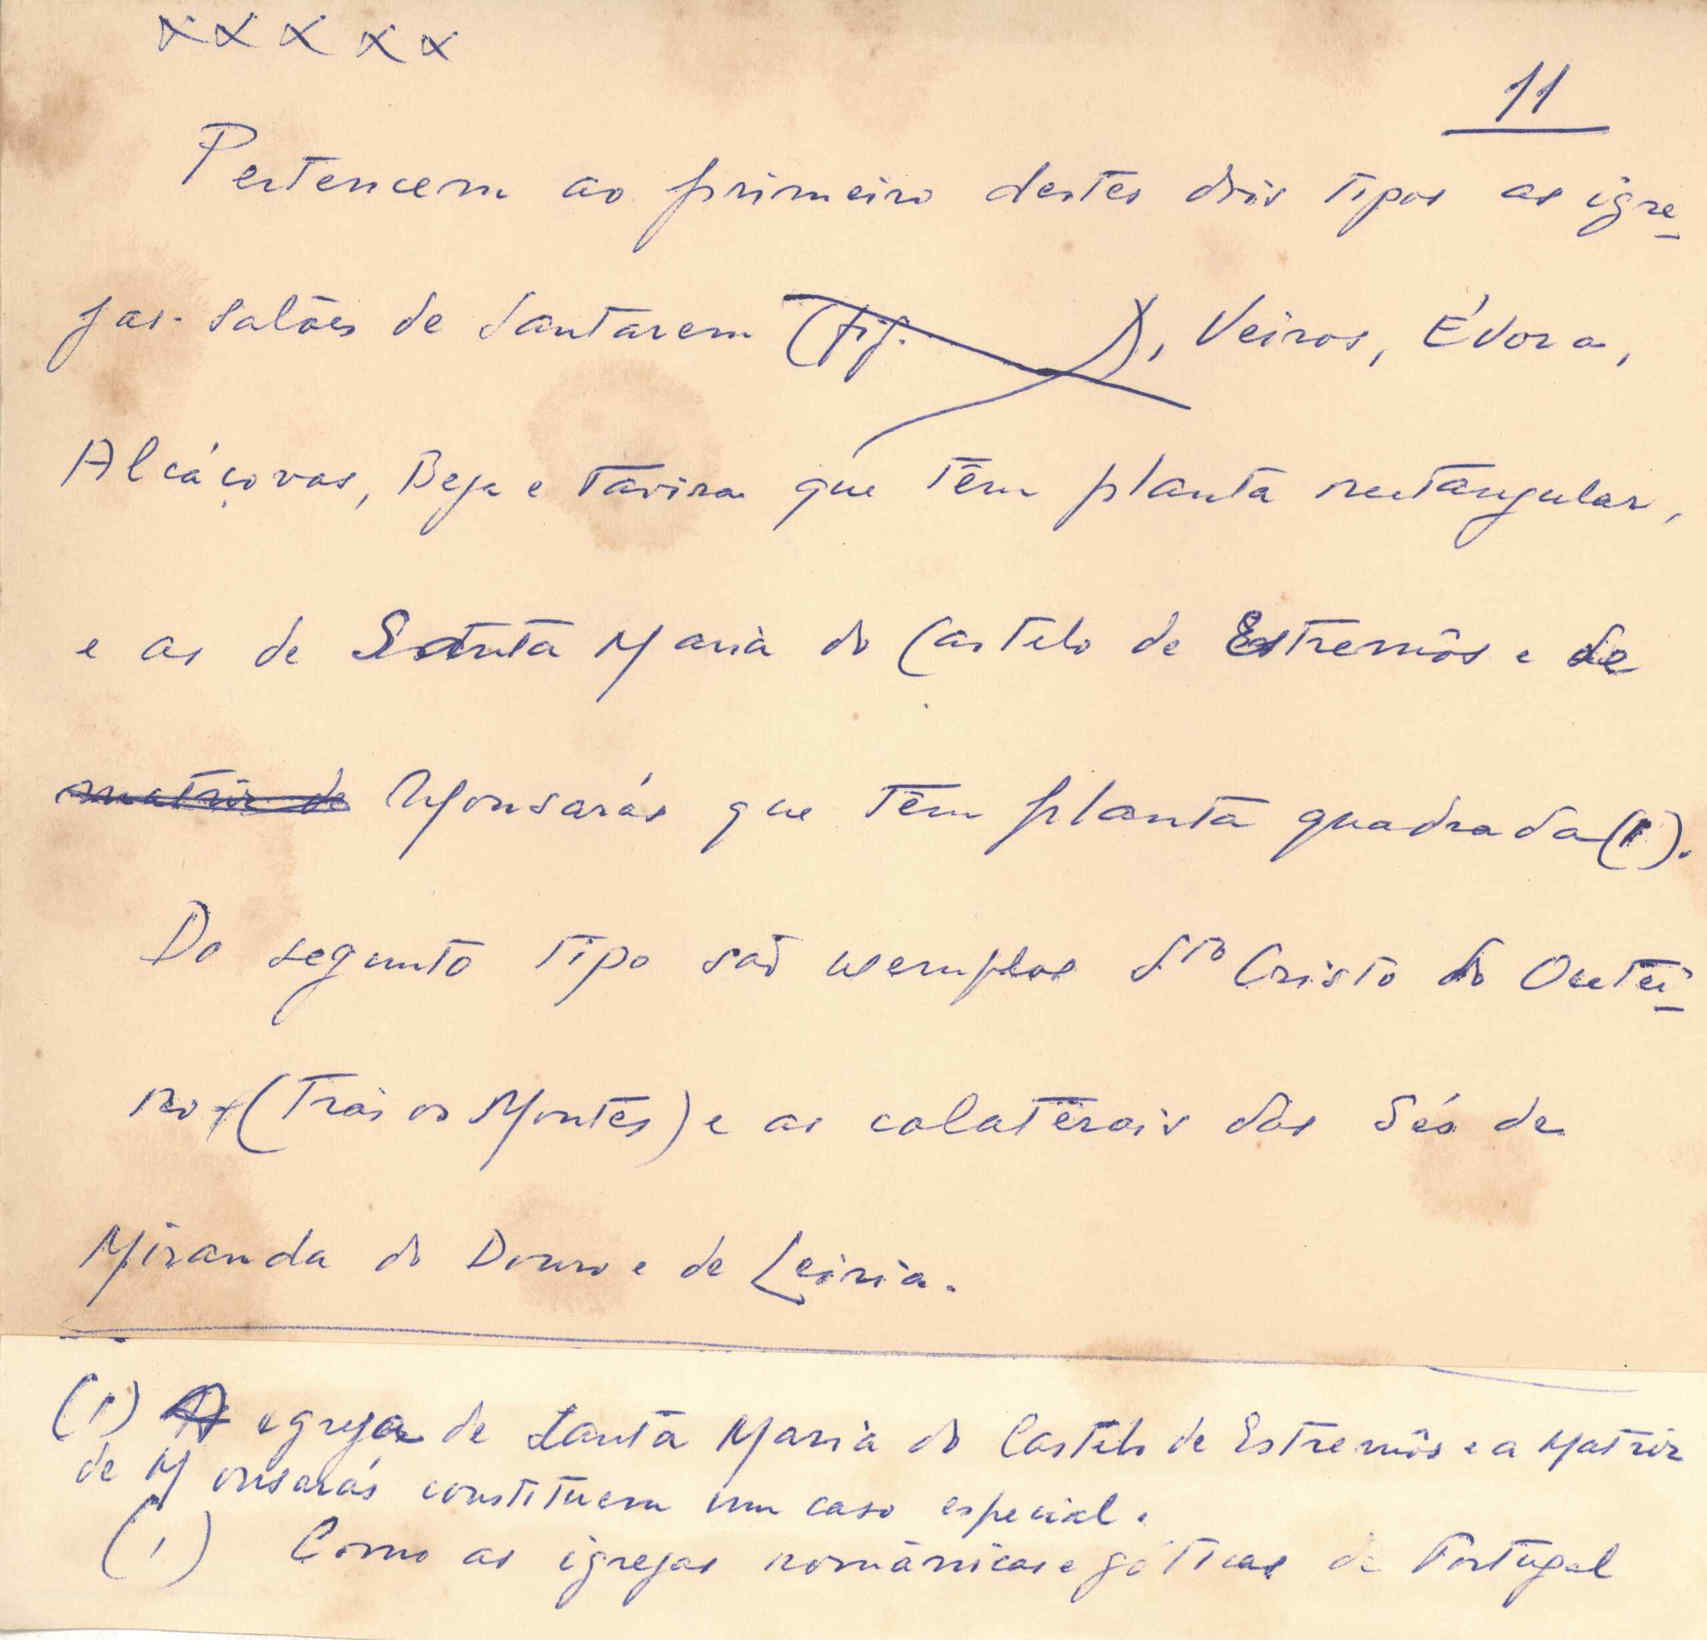 xxxxx
11
Pertencem ao primeiro destes dois tipos as igre-
jas-salões de Santarem (fig. ), Veiros, Évora,
Alcáçovas, Beja e Tavira que têm planta rectangular,
e as de Santa Maria do Castelo de Estremôs e de
matriz de Monsarás que têm planta quadrada (1).
Do segunto tipo são exemplos Sto Cristo do Outei-
ro (Trás os Montes) e as colaterais das Sés de
Miranda do Douro e de Leiria.
(1) A egreja de Santa Maria do Castelo de Estremôs e a Matriz
de Monsarás constituem um caso especial.
(1) Como as igrejas românicas e góticas de Portugal